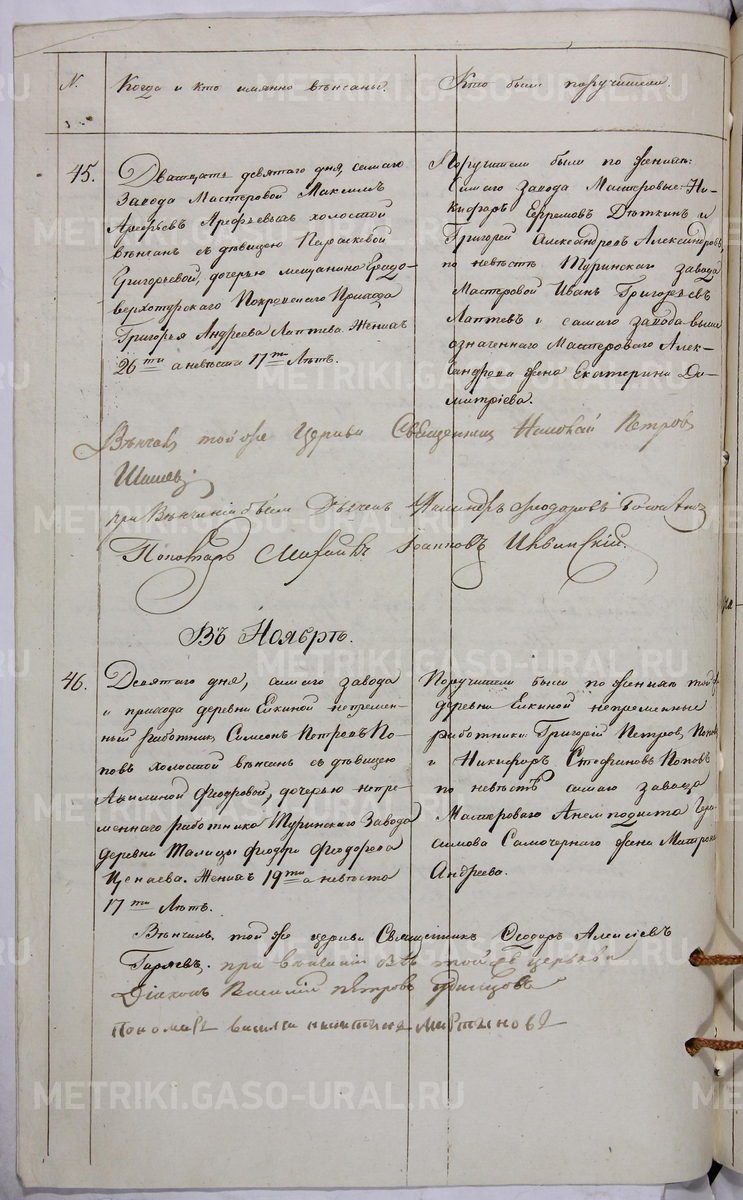 N.
Когда и кто имянно вѣнсаны.
Кто были поручители.
45.
Дватцать девятаго дня, самаго
Завода Мастеровой Максимъ
Арефьевъ Арефьевыхъ холостой
вѣнчанъ съ дѣвицею Параскевой
Григорьевой, дочерью мещанина
верхотурскаго Покровскаго Прихода
Григорья Андреева Лаптева. Жениху
26ти а невѣста 17ти Лѣтъ.
Поручители были по женихѣ:
самаго завода Мастеровые: Ни-
кифоръ Ефремовъ Дѣткинъ и
Григорей Александровъ Александровъ,
по невѣстѣ Туринскаго завода
Мастеровой Иванъ Григорьевъ
Лаптевъ и самаго завода выше
означеннаго Мастероваго Алек-
сандрова жена Екатерина Ди-
митріева.
Вѣнчалъ той же Церкви Священникъ Николай Петровъ
при Вѣнчаніи были Дьячекъ Ѳеодоровъ
Пономарь Михаилъ Іоанновъ Ивинскій.
Въ Ноябрѣ.
46.
Девятаго дня, самаго завода
и прихода деревни Елкиной непремен-
ный работникъ Симеонъ Петровъ По-
повъ холостой вѣнчанъ съ дѣвицею
Акилиной Ѳеодоровой, дочерью непре-
меннаго работника Туринскаго Завода
деревни Талицы Ѳеодора Ѳеодорова
Ценаева. Жениху 19ти а невѣста
17ти Лѣтъ.
Поручители были по женихѣ той же
деревни Елкиной непременные
работники: Григорій Петровъ Поповъ
и Никифоръ Стефановъ Поповъ
по невѣстѣ самаго завода
Мастероваго Анемподиста Гера-
симова Самочернаго жена Матрона
Андреева.
Вѣнчалъ той же церкви Священникъ Ѳеодоръ Алексіевъ
Гаряевъ. при вѣнчаніи былъ той же церкви
Діаконъ Василий петровъ Удинцовъ
пономарь василий никитинъ Мартиновъ
METRIKI.GASO-URAL.RU